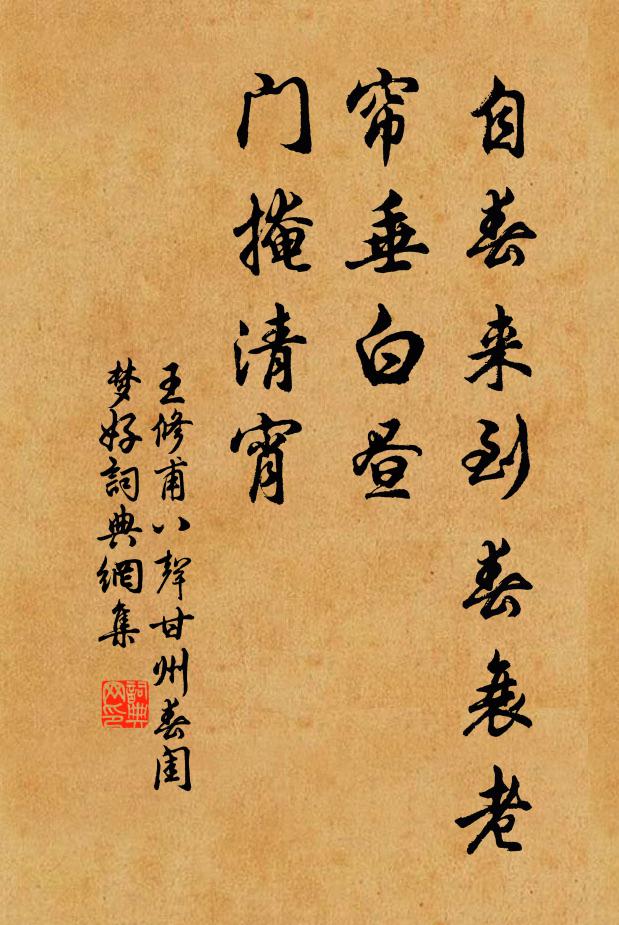 自春来到春衰老
帘垂白昼
门掩清宵
王修甫八聲甘州春闺
梦好詞典網集
詞典
网印